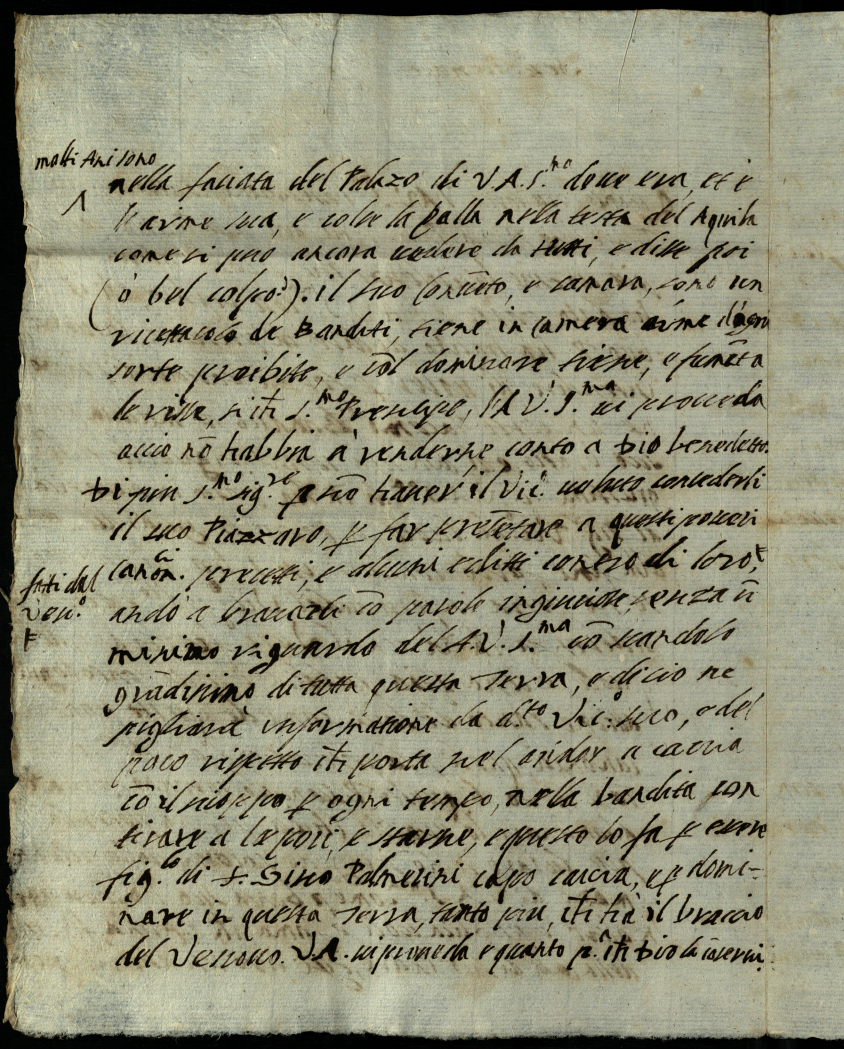 molti Ani sono
nella faciata del Palazo di V.A.S.mo doue era, et è
l'arme sua, e colse la palla nella testa del Aquila
come si puo ancora uedere da tutti, e disse poi
(ò bel colpo!). il suo Conueto, e camara, sono un
ricettacolo de Banditi, tiene in camera arme d'ogni
sorte proibite, e col dominare tiene, e fumeta
le risse, S.mo Prencipe, l'A.V.S.ma ui proueda
accio nō habbia à renderne conto a Dio benedetto.
Di piu S.mo Sig.re p nō hauer il Vic.o uoluto concederli
il suo Piazzaro, p far presētare a questi poueri
canōn.ci precetti, e alcuni editti contro di loro,
fatti dal
Vesc.o
andò a brauarli cō parole ingiuriose, senza ū
minimo riguardo del A.V.S.ma cō scandolo
grādissimo di tutta questa Terra, e di cio ne
pigliarà informatione da d.to Vic.o suo, e del
poco rispetto che porta nel andar a caccia
cō il scioppo p ogni tempo, nella bandita con
tirare a lepori, e starne, e questo lo fa p essere
fig.lo di S. Sisto Palmerini capo caccia, e p domi-
nare in questa Terra, tanto piu, che hà il braccio
del Vescouo. V.A. ui proueda e quanto p.a che Dio la cōserui.